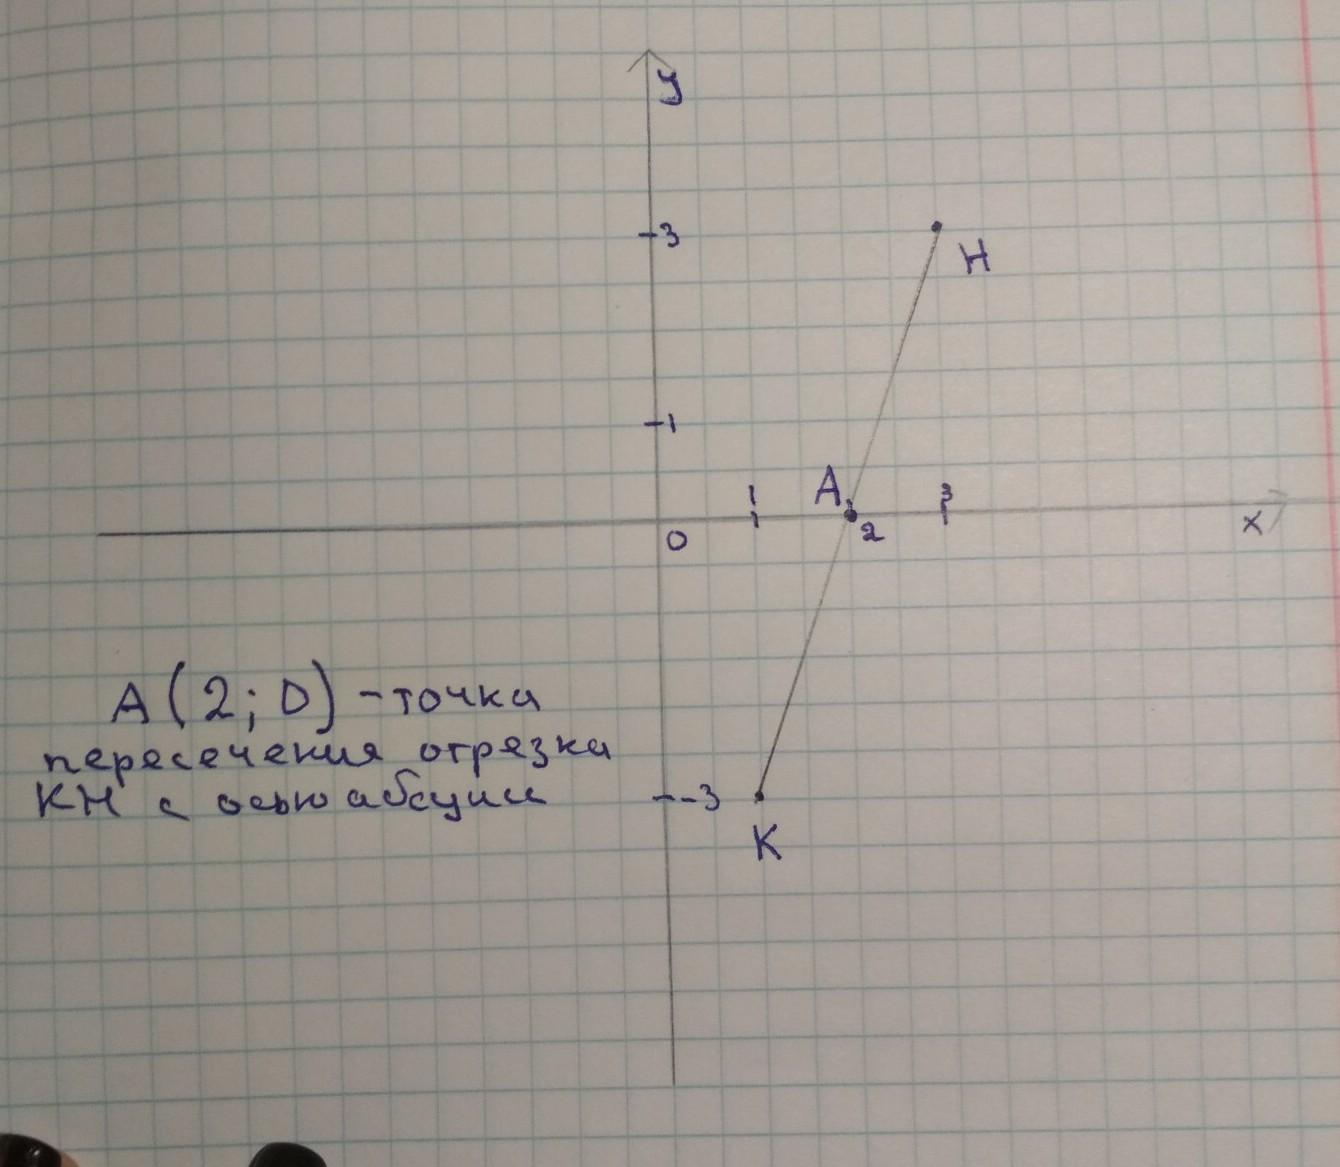 y
3
H
1
A
1
3
0
2
x
A(2; 0) - точка
пересечения отрезка
КН с осью абсцисс
-3
K